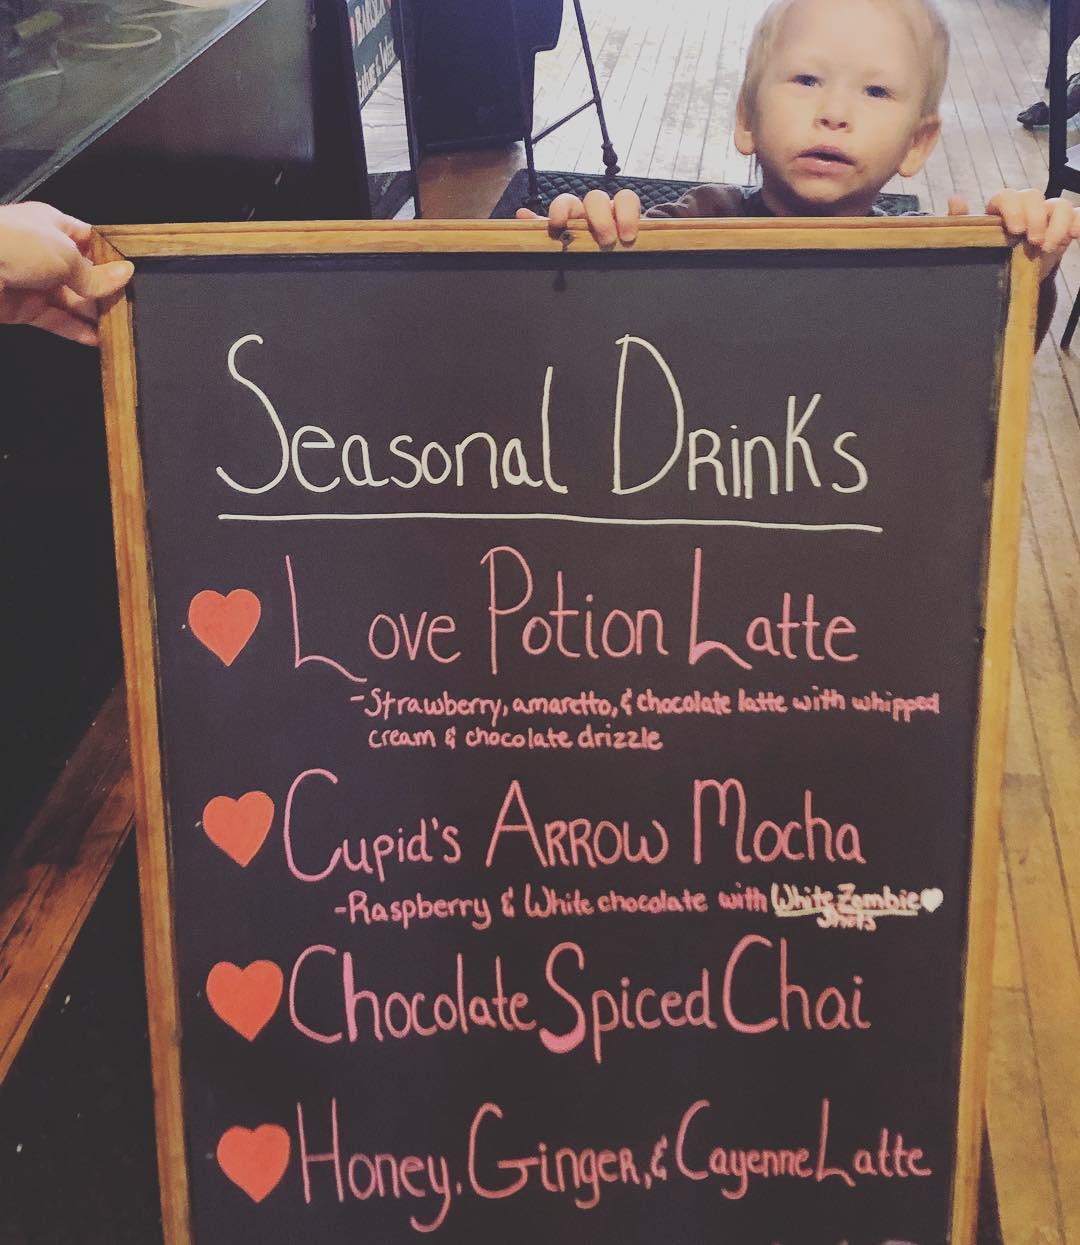 Seasonal Drinks
Love Potion Latte
-Strawberry, amaretto, & chocolate latte with whipped
cream & chocolate drizzle
Cupid's Arrow Mocha
-Raspberry & White chocolate with White Zombie
Shots
Chocolate Spiced Chai
Honey, Ginger, & Cayenne Latte